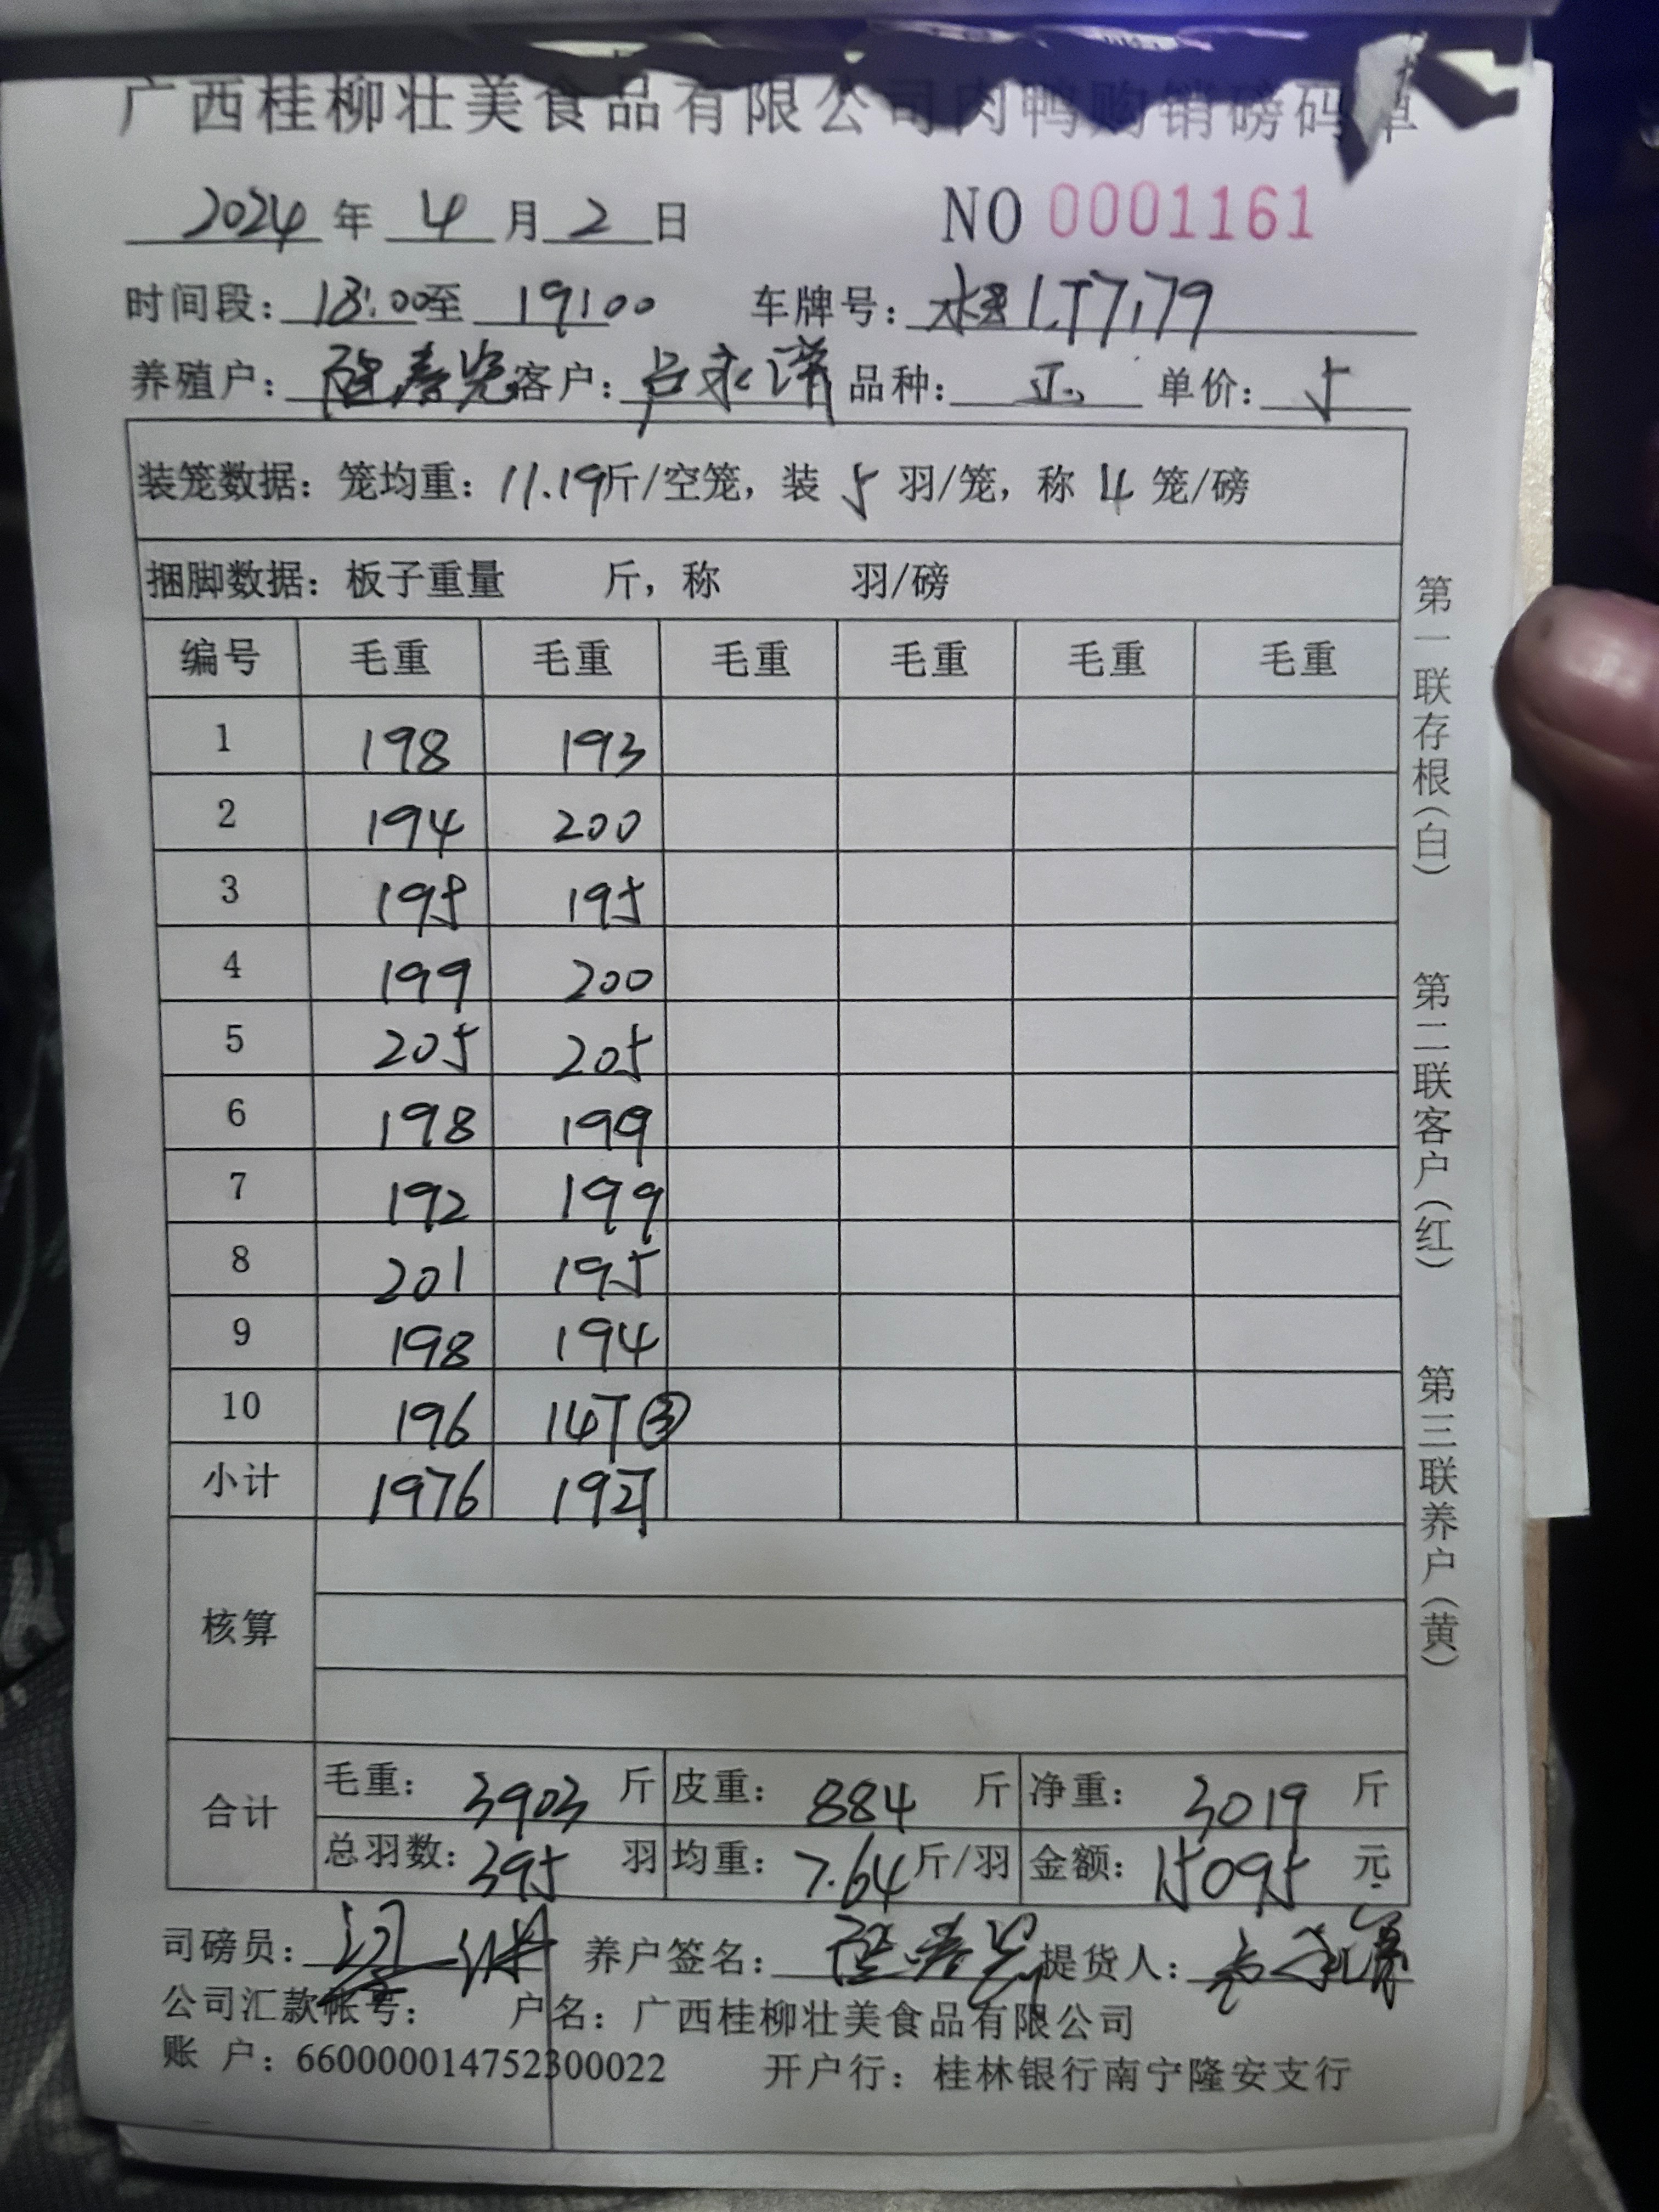 广西桂柳壮美食品有限公司肉鸭购销磅码单
2024年4月2日 NO 0001161
时间段:18:00至19:00 车牌号:桂LT7179
养殖户: 客户: 品种: 单价:5
装笼数据:笼均重:11.19斤/空笼,装5羽/笼,称4笼/磅
捆脚数据:板子重量 斤,称 羽/磅
编号 毛重 毛重 毛重 毛重 毛重 毛重
1 198 193
2 194 200
3 195 195
4 199 200
5 205 205
6 198 199
7 192 199
8 201 195
9 198 194
10 196 147③
小计 1976 1927
核算
合计 毛重:3903斤 皮重:884斤 净重:3019斤
总羽数:395羽 均重:7.64斤/羽 金额:15095元
司磅员: 养户签名: 提货人:
公司汇款帐号: 户名:广西桂柳壮美食品有限公司
账户:660000014752300022 开户行:桂林银行南宁隆安支行
第一联存根(白) 第二联客户(红) 第三联养户(黄)